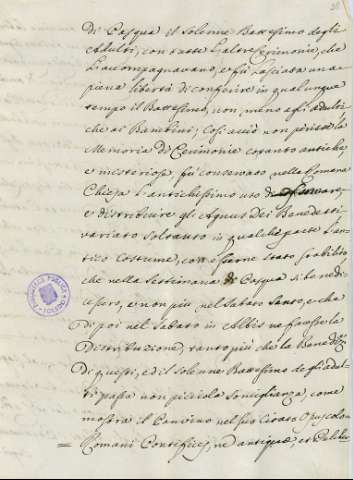 di Pasqua il Solenne Battesimo degli
Adulti, con tutte l'altre Cerimonie, che
l'accompagnavano, e fù lasciata una
piena libertà di conferire in qualunque
tempo il Battesimo, non meno agli adulti,
che ai Bambini; Così acciò non perisse la
Memoria di Cerimonie cotanto antiche,
e misteriose, fù conservato nella Romana
Chiesa l'antichissimo uso di
e distribuire gli Agnus Dei Benedetti,
variato soltanto in qualche parte l'an-
tico Costume, con essere stato stabilito,
che nella Settimana di Pasqua si benedi-
cessero, e non più nel Sabato Santo, e che
di poi nel Sabato in Albis ne fosse la
Distribuzione, tanto più che la Bened.
di questi, ed il Solenne Battesimo degli adul-
ti passa non picciola Somiglianza, come
mostra il Cancino nel suo citato Opuscolo
Romani Pontifices, ne antiquæ, et